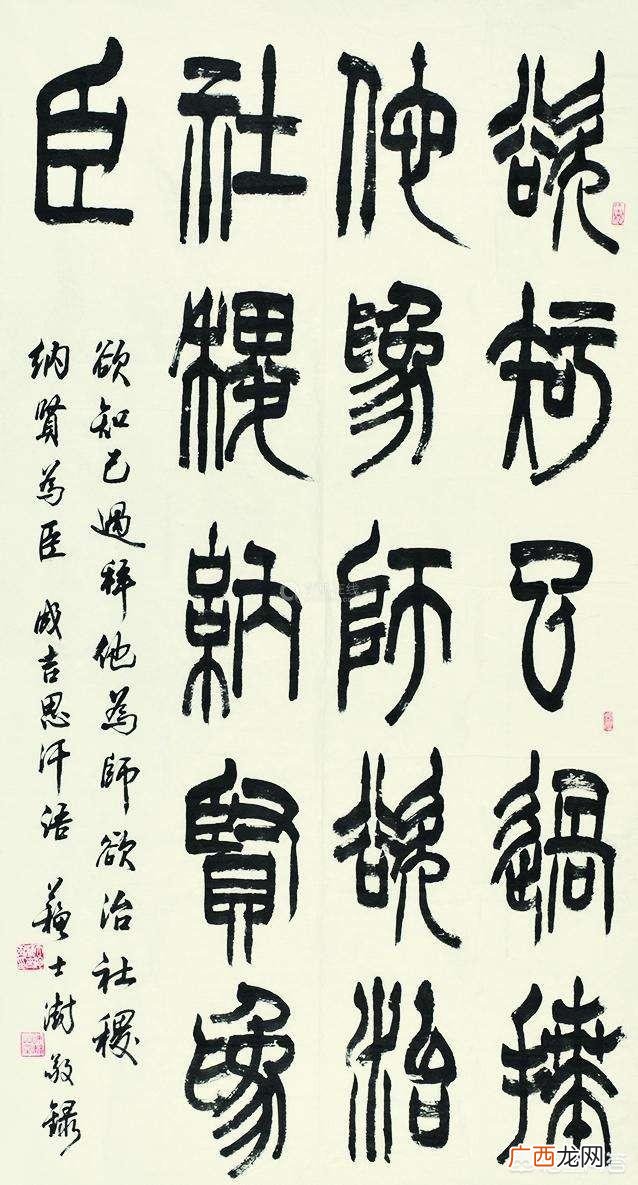 欲知己過拜
他為師欲治
社稷納賢為
臣
欲知己過拜他為師欲治社稷
納賢為臣 成吉思汗語 蘇士澍敬錄
广西龙网